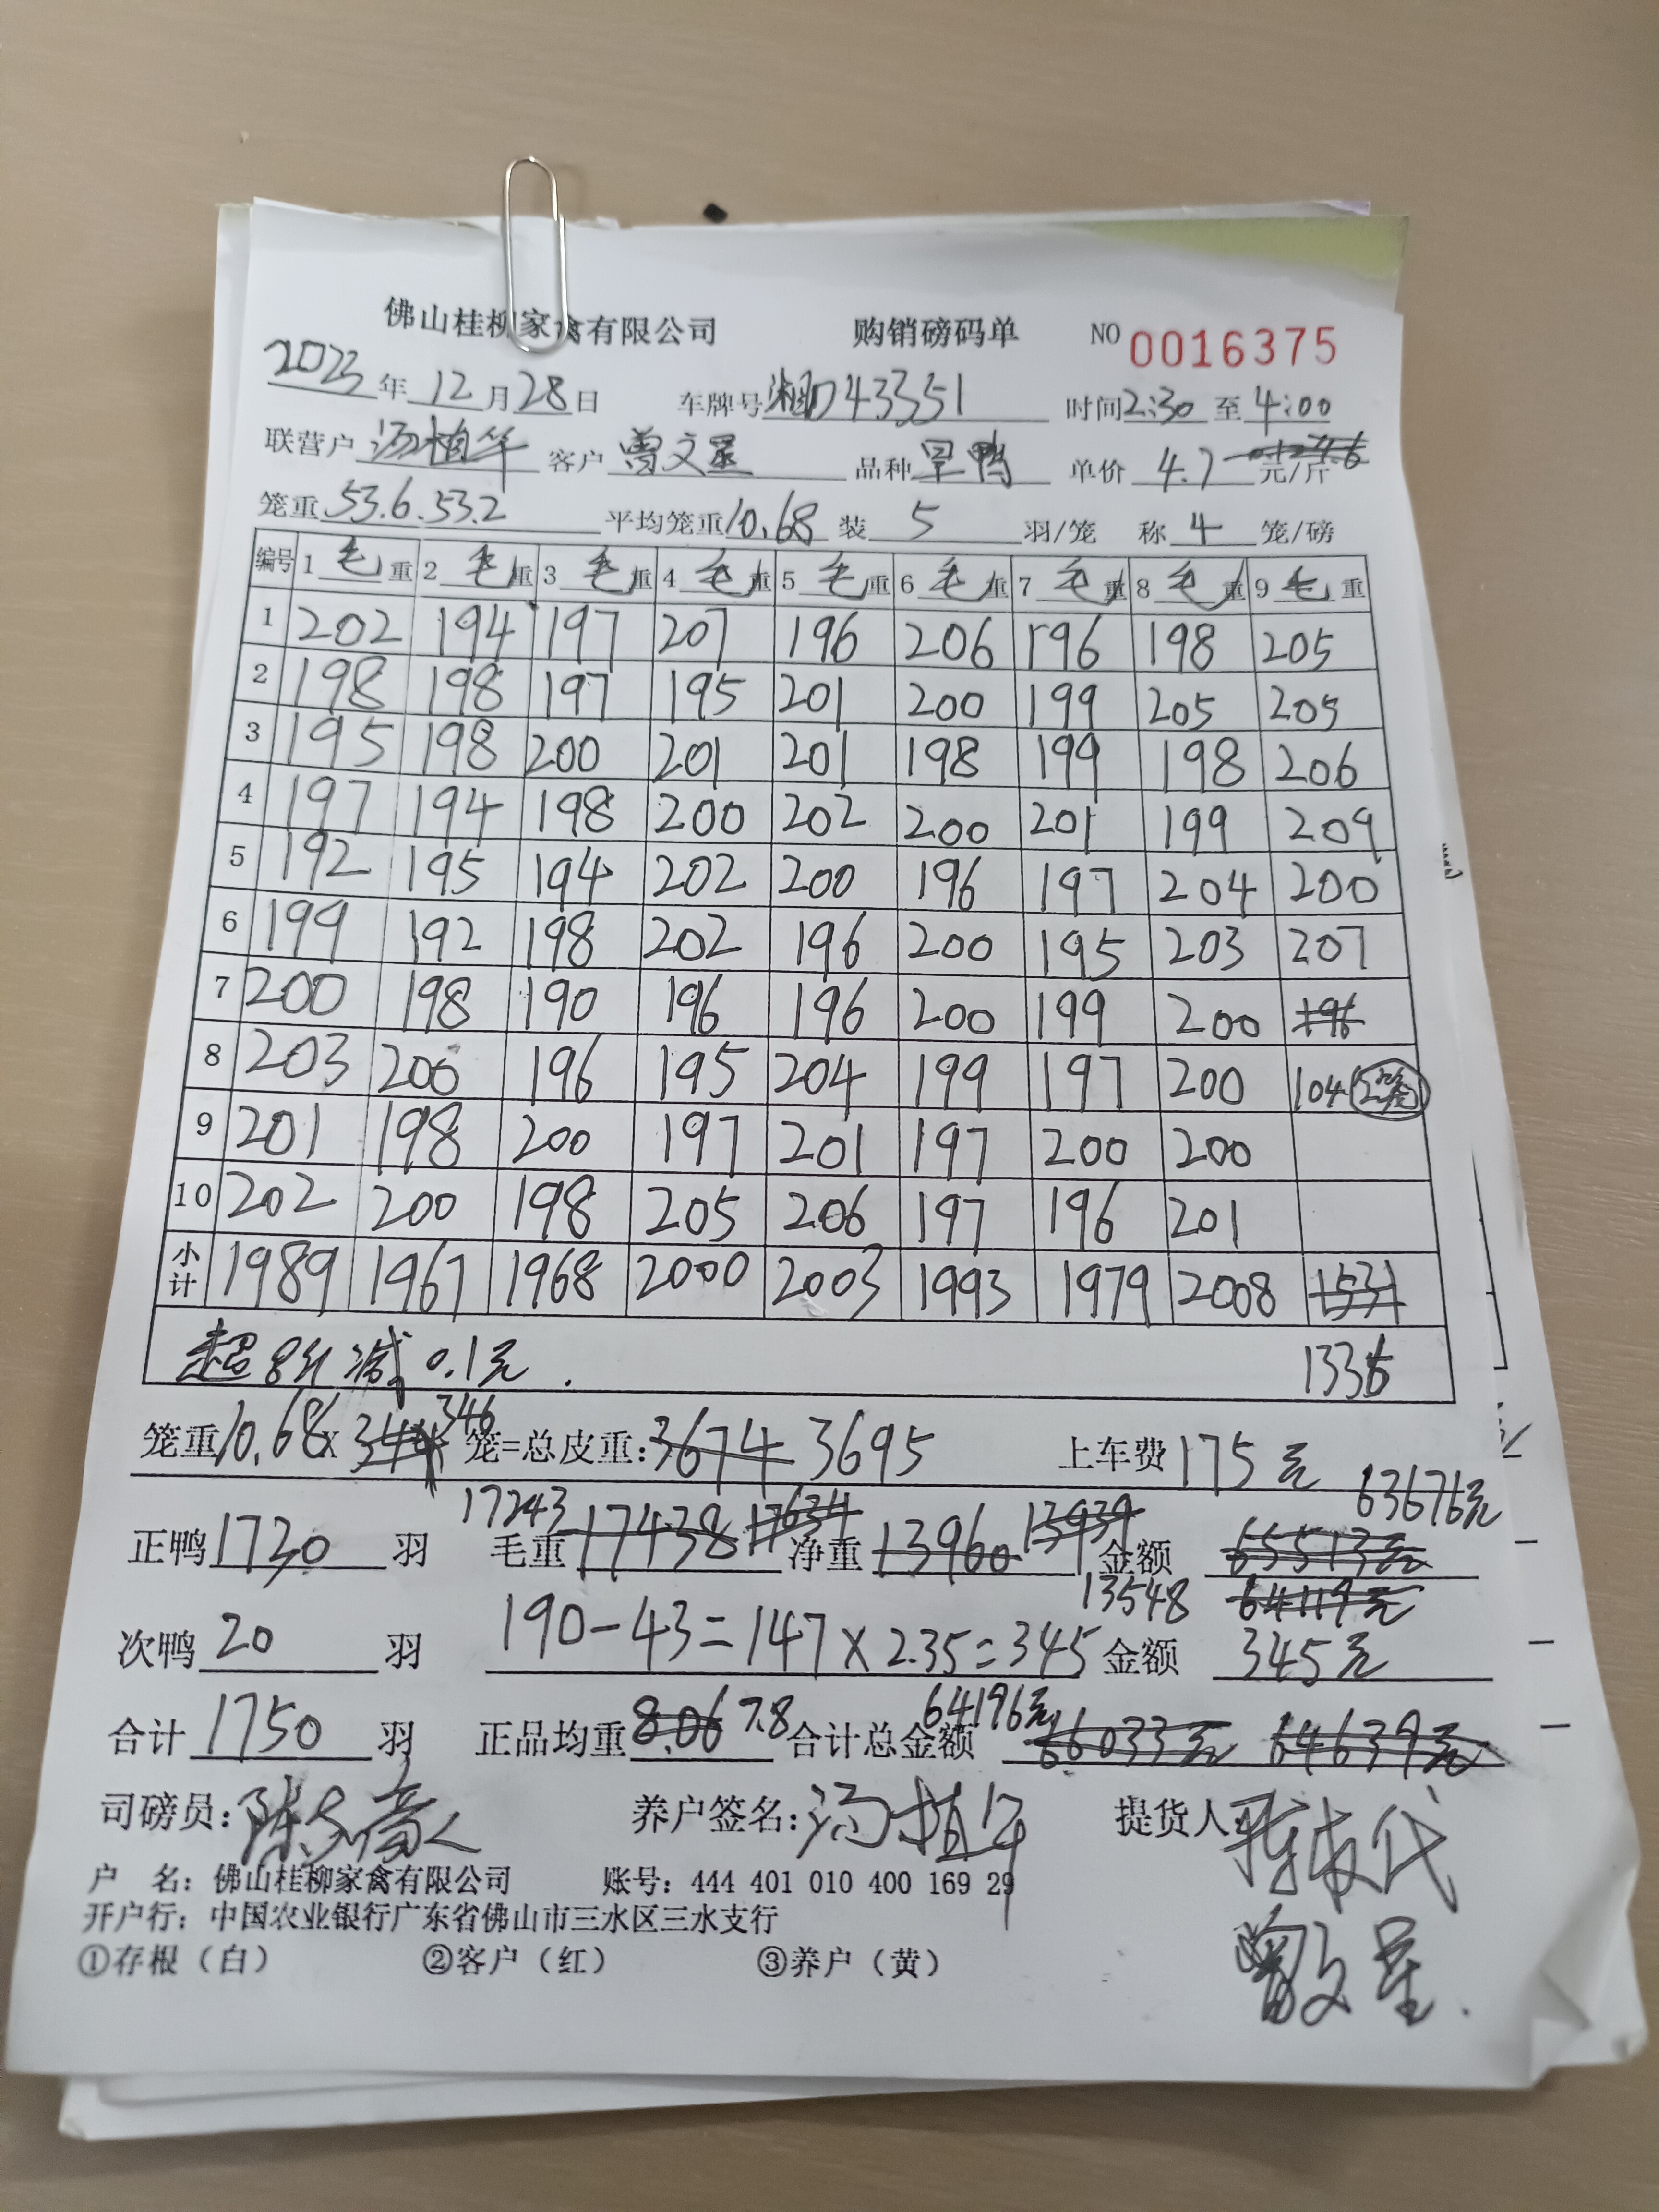 佛山桂柳家禽有限公司 购销磅码单 NO 0016375
2023年12月28日 车牌号湘D43351 时间2:30至4:00
联营户汤植年 客户曾文星 品种旱鸭 单价4.7元/斤
笼重53.6.53.2 平均笼重10.68装5羽/笼 称4笼/磅
编号 1毛重 2毛重 3毛重 4毛重 5毛重 6毛重 7毛重 8毛重 9毛重
1 202 194 197 207 196 206 196 198 205
2 198 198 197 195 201 200 199 205 205
3 195 198 200 201 201 198 199 198 206
4 197 194 198 200 202 200 201 199 209
5 192 195 194 202 200 196 197 204 200
6 199 192 198 202 196 200 195 203 207
7 200 198 190 196 196 200 199 200 196
8 203 200 196 195 204 199 197 200 104 2笼
9 201 198 200 197 201 197 200 200
10 202 200 198 205 206 197 196 201
小计 1989 1967 1968 2000 2003 1993 1979 2008 1531
超8斤减0.1元. 1336
346
笼重10.68x344笼=总皮重:3674 3695 上车费175元
17243 17634 13939 63676元
正鸭1730羽 毛重17438 净重13960 金额65513元
13548 64119元
次鸭20羽 190-43=147x2.35=345 金额345元
64196元
合计1750羽 正品均重8.06 7.8 合计总金额66033元 64639元
司磅员: 养户签名:汤植年 提货人:
曾文星.
户 名：佛山桂柳家禽有限公司 账号：444 401 010 400 169 29
开户行：中国农业银行广东省佛山市三水区三水支行
①存根（白） ②客户（红） ③养户（黄）